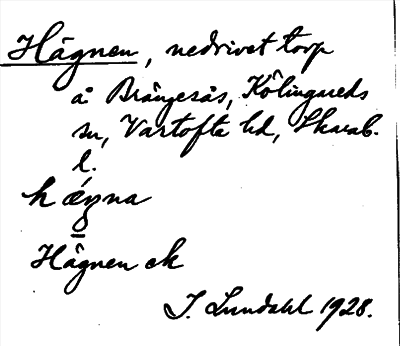 Hägnen, nedrivet torp
å Brängesås, Kölingareds
sn, Vartofta hd, Skarab.
l.
hægna
Hägnen ek
I. Lundahl 1928.